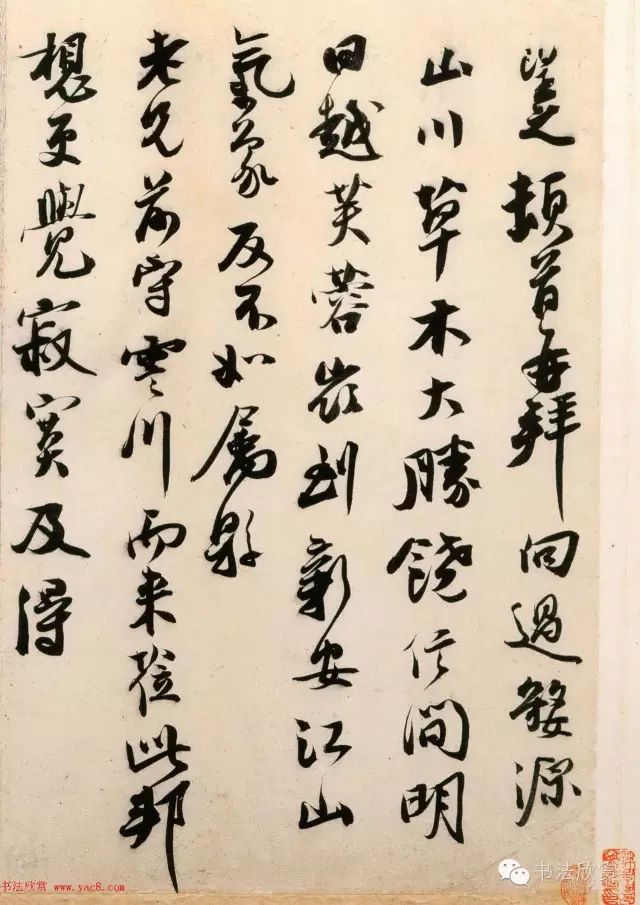 頓首再拜向過婺源
山川草木大勝饒信間明
日越芙蓉嶺到新安江山
氣象反不如屬縣
老兄前守霅川而來蒞此邦
想更覺寂寞及得
书法欣赏
书法欣赏 www.yac8.com